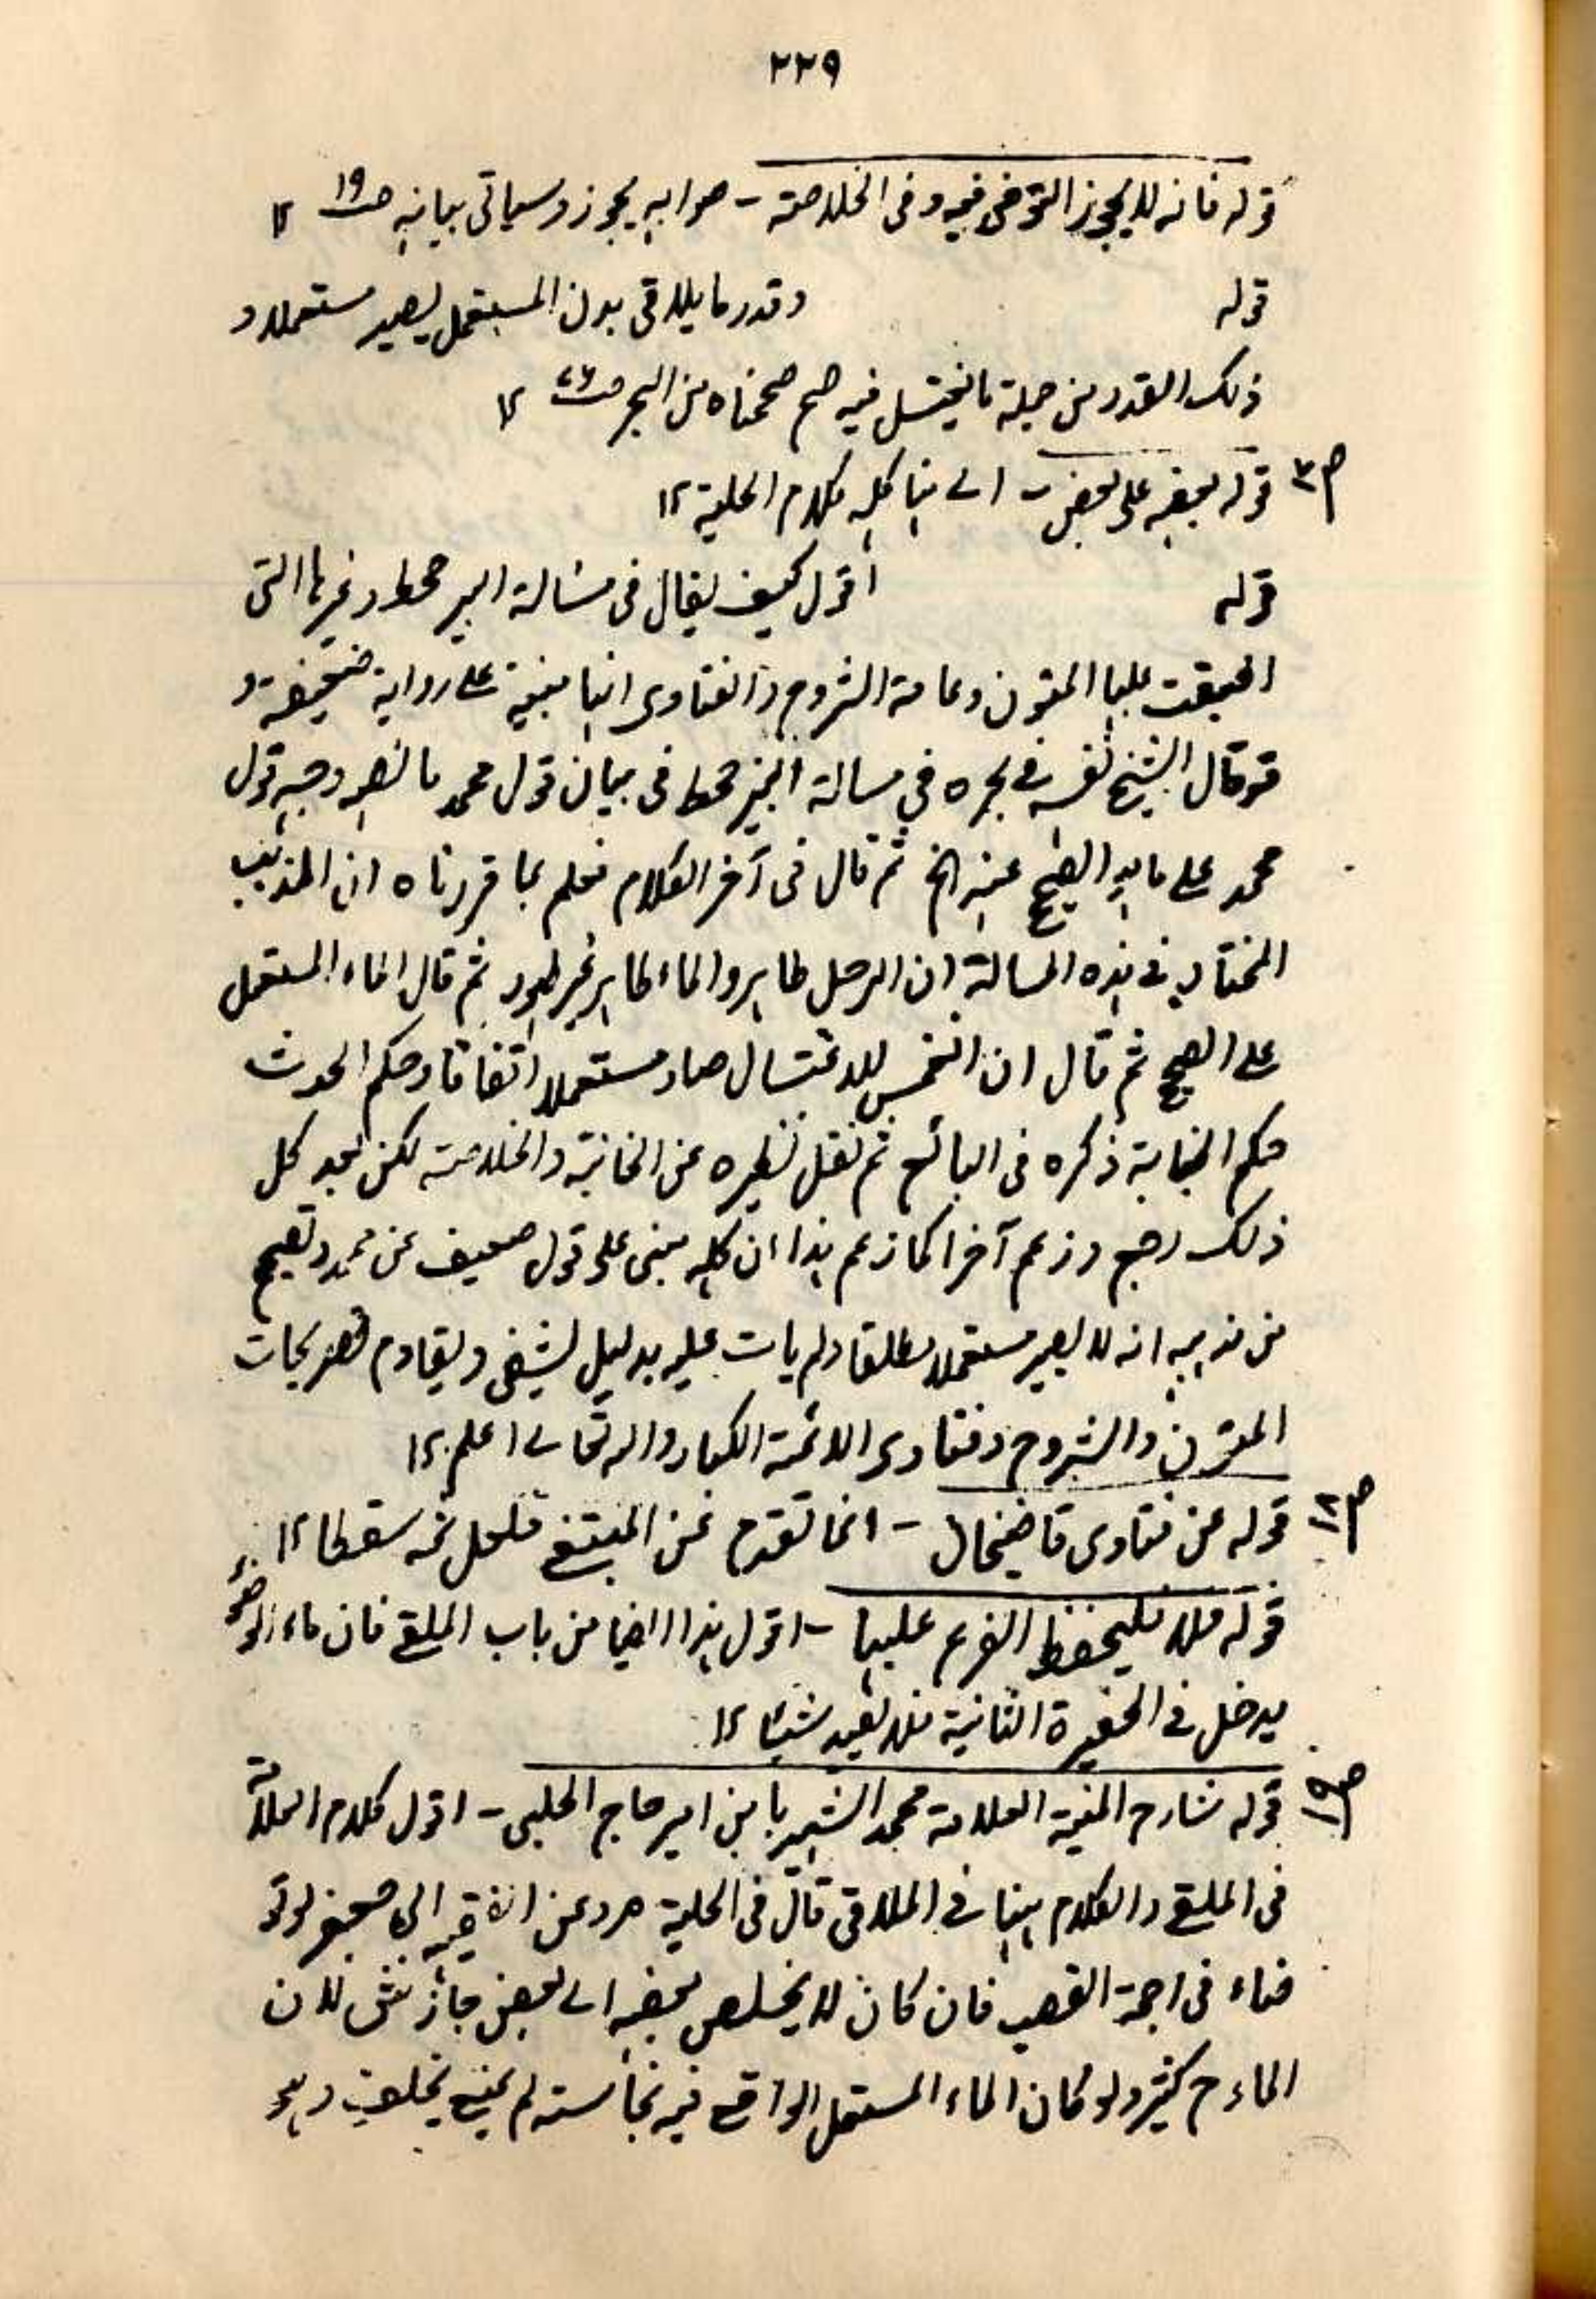 ٢٢٩
قوله فانه لا يجوز التوضى فيه وفى الخلاصة - صوابه يجوز وسياتى بيانه ص١٩ ١٢
قوله وقدر ما يلاقى بدن المستعمل يصير مستعملا و
ذلك القدر من جملة ما يغتسل فيه صح صححناه من البحر ص ١٢
ص٣ قوله بعضه على بعض - الى هنا كله كلام الحلية ١٢
قوله اقول كيف يقال فى مسالة البير جحط وغيرها التى
اطبقت عليها المتون وعامة الشروح والفتاوى انها مبنية على رواية ضعيفة و
قد قال الشيخ نفسه فى بحره فى مسالة البير جحط فى بيان قول محمد ما نصه وجه قول
محمد على ما هو الصحيح عنه الخ ثم قال فى آخر الكلام فعلم بما قررناه ان المذهب
المختار فى هذه المسالة ان الرجل طاهر والماء طاهر غير طهور ثم قال الماء المستعمل
على الصحيح ثم قال ان انغمس للاغتسال صار مستعملا اتفاقا وحكم الحدث
حكم الجنابة ذكره فى البدائع ثم نقل نظيره عن الخانية والخلاصة لكن بعد كل
ذلك رجع وزعم آخرا كما زعم هذا ان كله مبنى على قول ضعيف عن محمد والصحيح
من مذهبه انه لا يصير مستعملا مطلقا ولم يات عليه بدليل يشفى ويقاوم تصريحات
المتون والشروح وفتاوى الائمة الكبار والله تعالى اعلم ١٢
ص١٢ قوله عن فتاوى قاضيخان - انما تقدم عن المبتغى فلعل ثمه سقطا ١٢
قوله فلا فليحفظ الفرع عليها - اقول هذا ايضا من باب الملقى فان ماء الوضوء
يدخل فى الحفيرة الثانية فلا يفيد شيئا ١٢
ص١٩ قوله شارح المنية العلامة محمد الشهير بابن امير حاج الحلبى - اقول كلام العلامة
فى الملقى والكلام ههنا فى الملاقى قال فى الحلية مرد عن الفقيه ابى جعفر لو توضأ
فى اجمة القصب فان كان لا يخلص بعضه الى بعض جاز نش لان
الماء ح كثير ولو كان الماء المستعمل الواقع فيه نجاسته لم يمنع بخلاف وهو